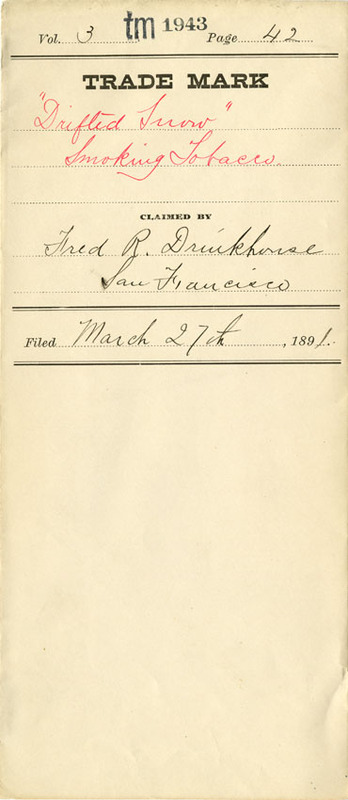 Vol. 3 tm 1943 Page 42
TRADE MARK
"Drifted Snow"
Smoking Tobacco
CLAIMED BY
Fred R. Drinkhouse
San Francisco
Filed March 27th, 1891.